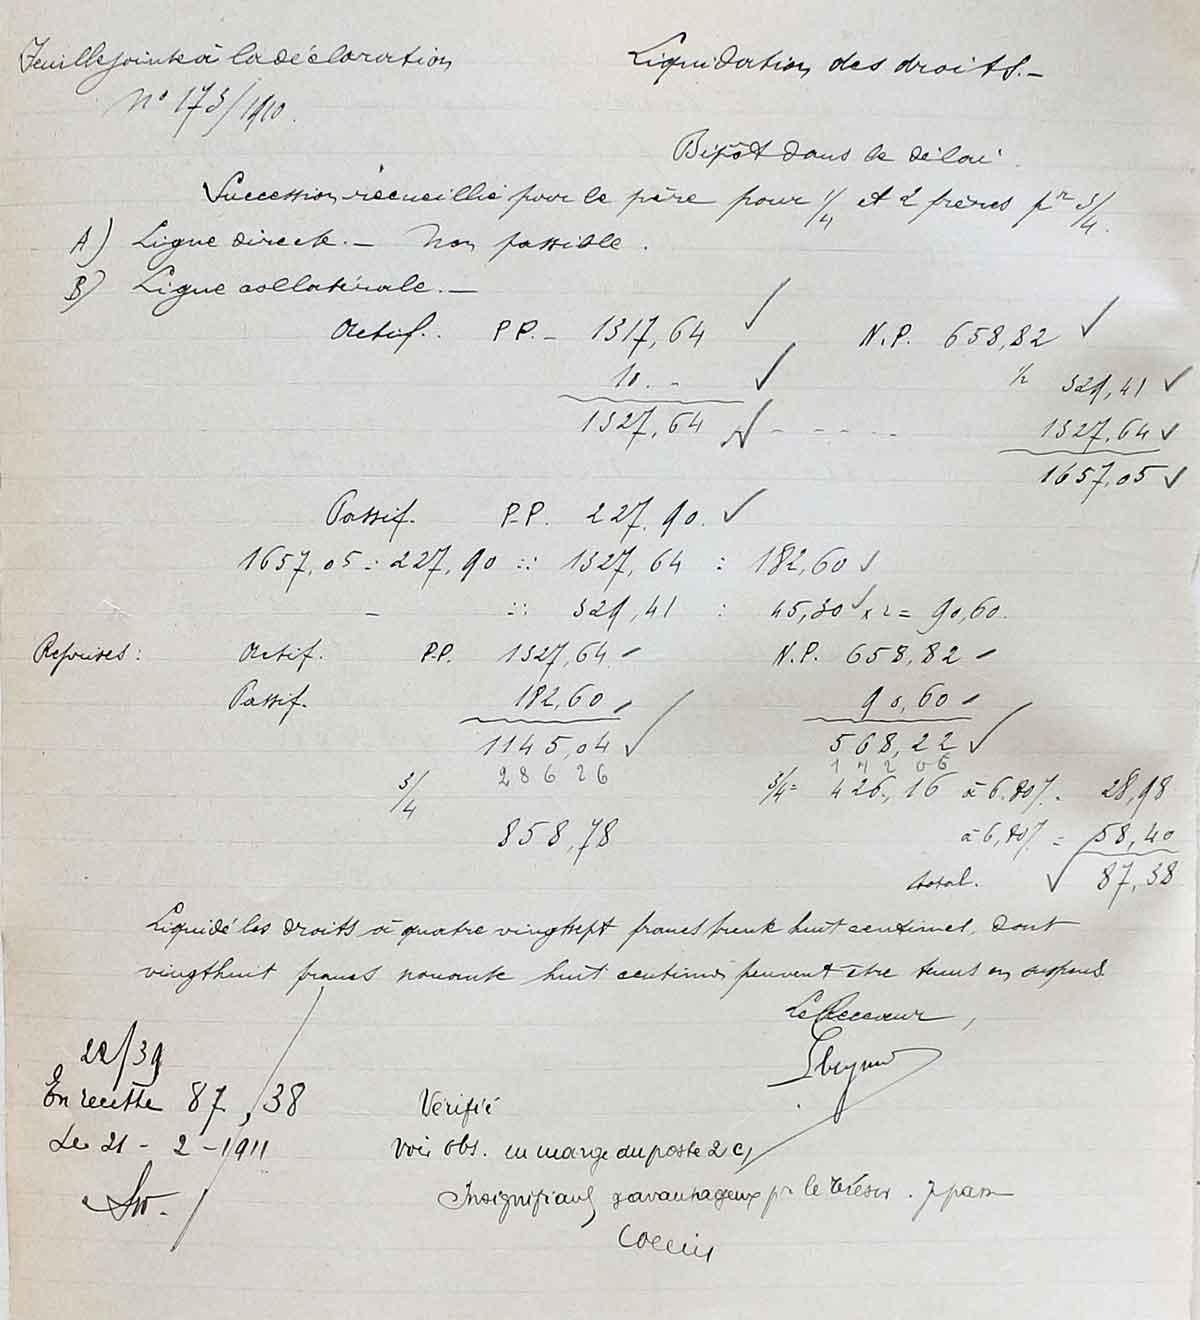 Feuille jointe à la déclaration
Liquidation des droits.-
n° 173/1910.
Dépôt dans le délai.
Succession recueillie pour le père pour 1/4 et 2 frères pr 3/4.
A) Ligne directe.- Non passible.
B) Ligne collatérale.-
Actif. P.P.- 1317,64 N.P. 658,82
10.- 1/2 329,41
1327,64 ----- 1327,64
1657,05
Passif. P.P. 227,90.
1657,05 : 227,90 :: 1327,64 : 182,60
- :: 329,41 : 45,30 x 2 = 90,60.
Reprises : Actif. P.P. 1327,64 N.P. 658,82
Passif. 182,60 90,60
1145,04 568,22
28626 14206
3/4 3/4= 426,16 à 6.80% = 28,98
858,78 à 6,80% = 58,40
total. 87,38
Liquidé les droits à quatre vingtsept francs trente huit centimes, dont
vingthuit francs nonante huit centimes peuvent être tenus en suspens
Le Receveur,
22/39
En recette 87,38 Vérifié
Le 21-2-1911 Voir obs. en marge du poste 2 c,
Insignifiant & avantageux pr le trésor.